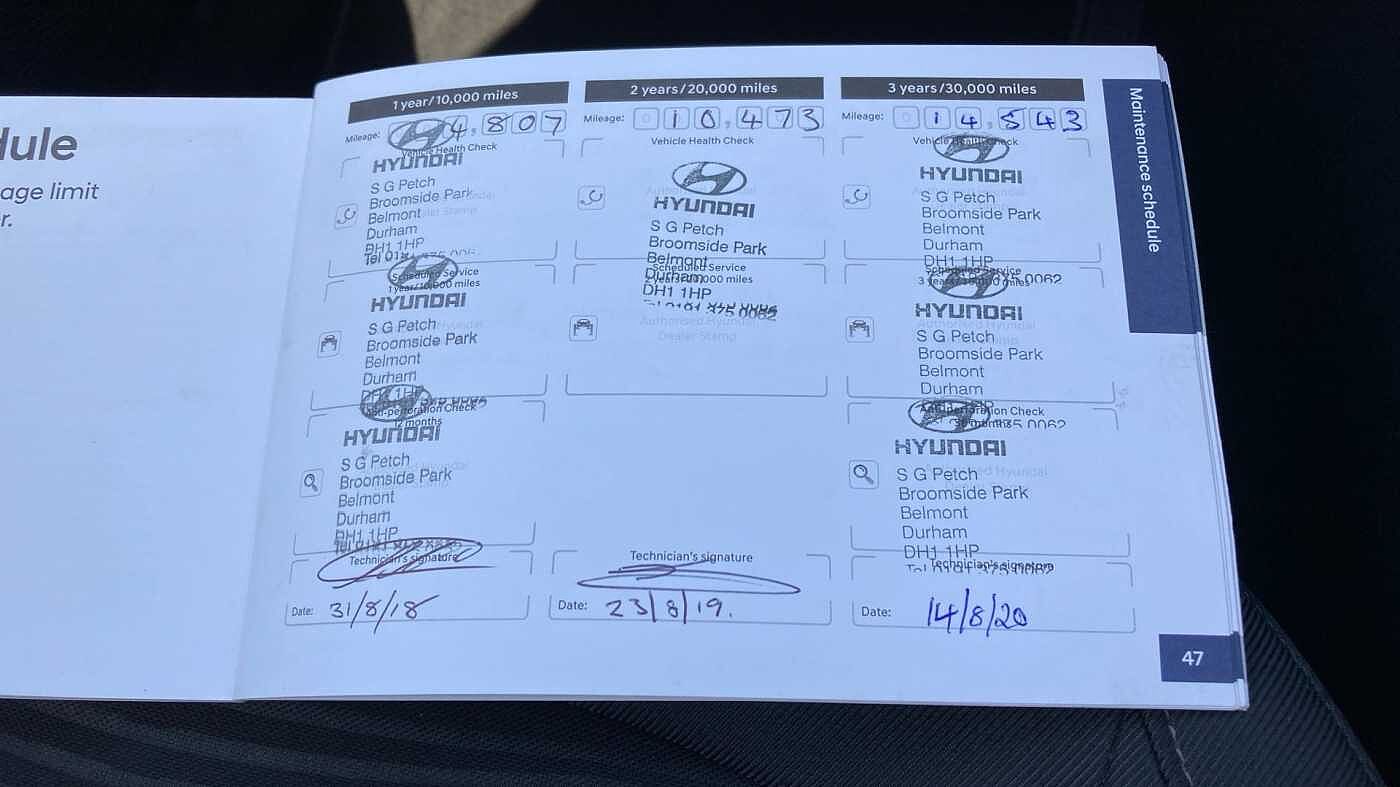 dule
age limit
r.
1 year/10,000 miles
Mileage: 4,807
Vehicle Health Check
HYUNDAI
S G Petch
Broomside Park
Belmont
Durham
DH1 1HP
Scheduled Service
1 year/10,000 miles
HYUNDAI
S G Petch
Broomside Park
Belmont
Durham
DH1 1HP
Anti-perforation Check
12 months
HYUNDAI
S G Petch
Broomside Park
Belmont
Durham
DH1 1HP
Technician's signature
Date: 31/8/18
2 years/20,000 miles
Mileage: 010,473
Vehicle Health Check
HYUNDAI
S G Petch
Broomside Park
Belmont
Durham
DH1 1HP
Scheduled Service
2 years/20,000 miles
Authorised Hyundai
Dealer Stamp
Technician's signature
Date: 23/8/19.
3 years/30,000 miles
Mileage: 014,543
Vehicle Health Check
HYUNDAI
S G Petch
Broomside Park
Belmont
Durham
DH1 1HP
Scheduled Service
3 years/30,000 miles
HYUNDAI
S G Petch
Broomside Park
Belmont
Durham
Anti-perforation Check
HYUNDAI
S G Petch
Broomside Park
Belmont
Durham
DH1 1HP
Tel 0191 375 0062
Technician's signature
Date: 14/8/20
Maintenance schedule
47